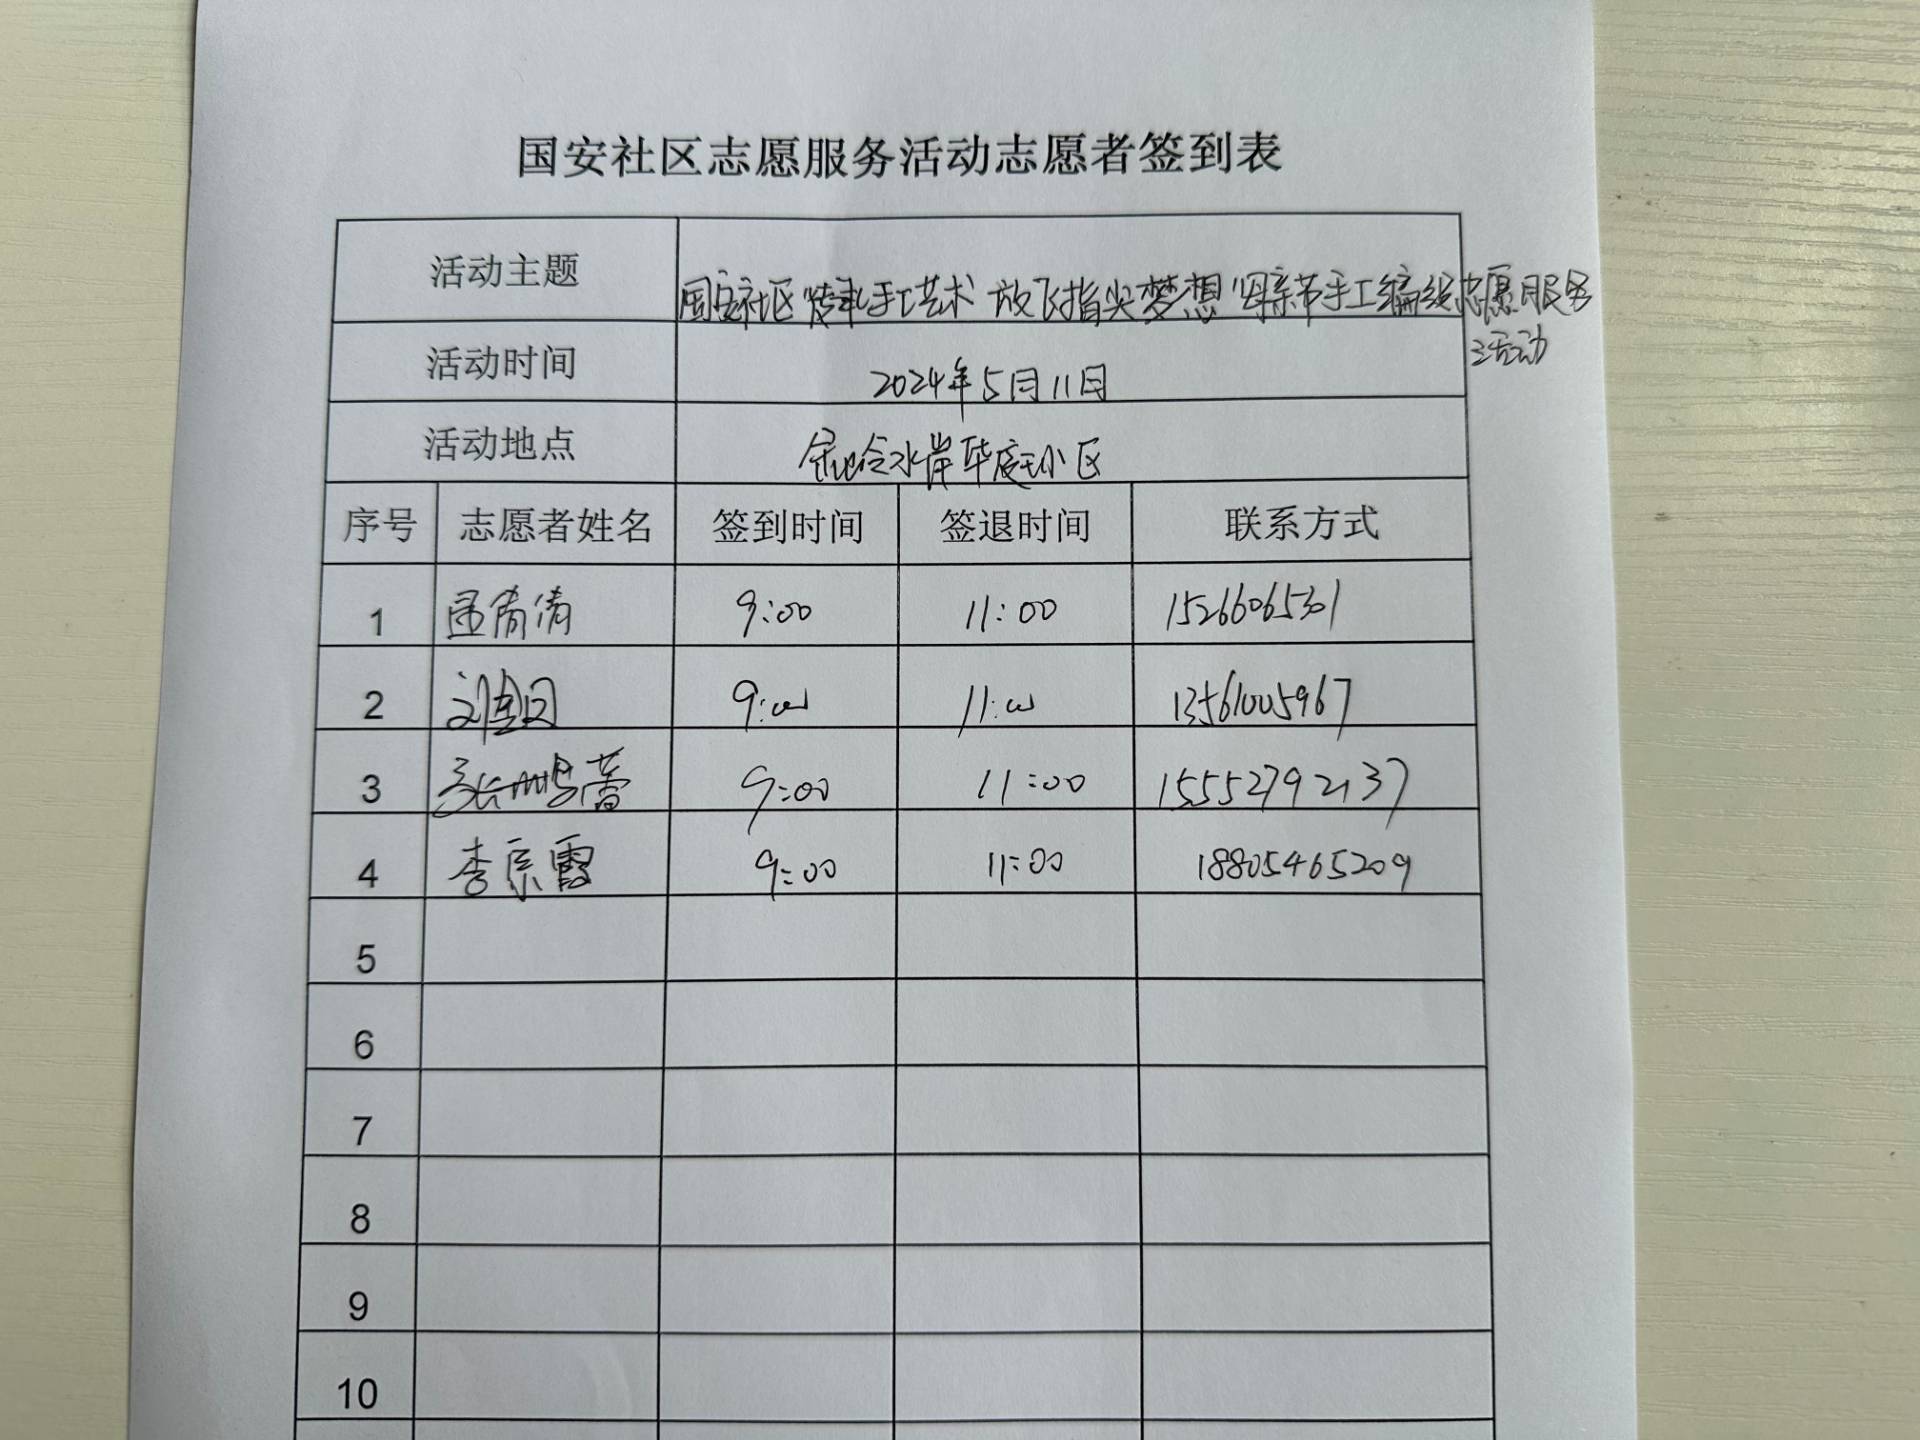 国安社区志愿服务活动志愿者签到表
活动主题 国安社区"传承手工艺术 放飞指尖梦想"母亲节手工编织志愿服务
活动
活动时间 2024年5月11日
活动地点 水岸华庭小区
序号 志愿者姓名 签到时间 签退时间 联系方式
1 孟倩倩 9:00 11:00 15266065301
2 刘 9:00 11:00 13561005967
3 张 蕾 9:00 11:00 15552792137
4 李 霞 9:00 11:00 18805465209
5
6
7
8
9
10